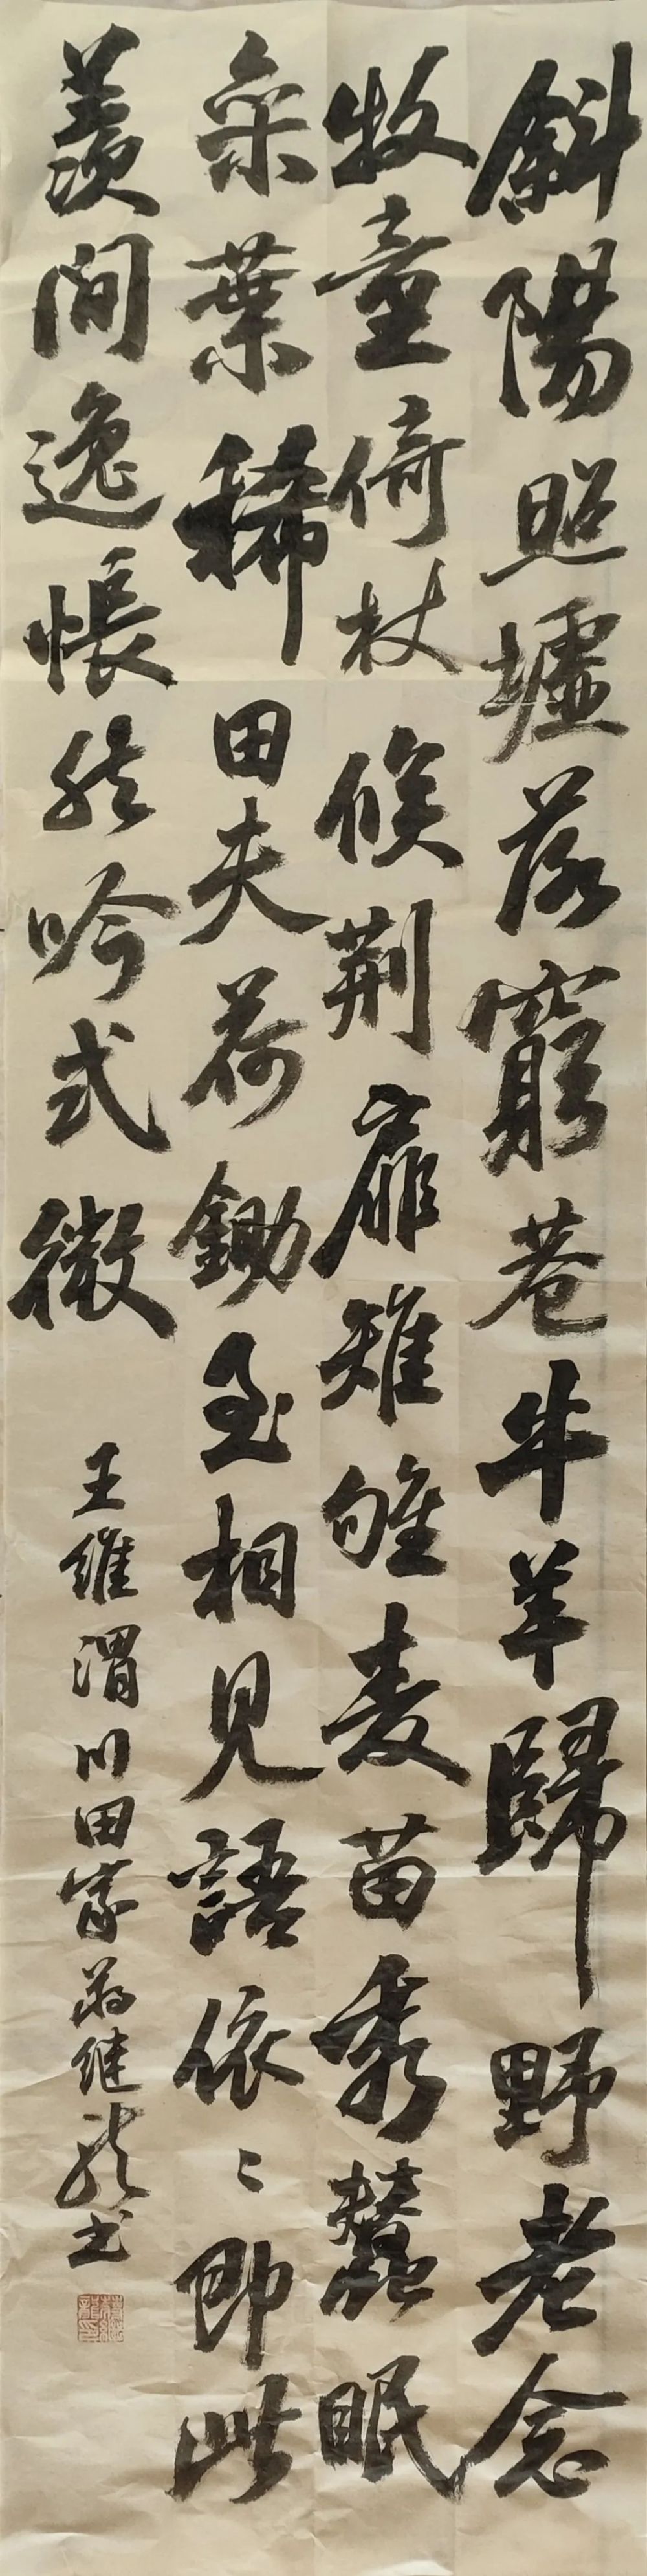 斜陽照墟落窮巷牛羊歸野老念
牧童倚杖候荊扉雉雊麦苗秀蠶眠
桒葉稀田夫荷鋤至相見語依〻即此
羨閒逸悵然吟式微
王維渭川田家蔣继龙书